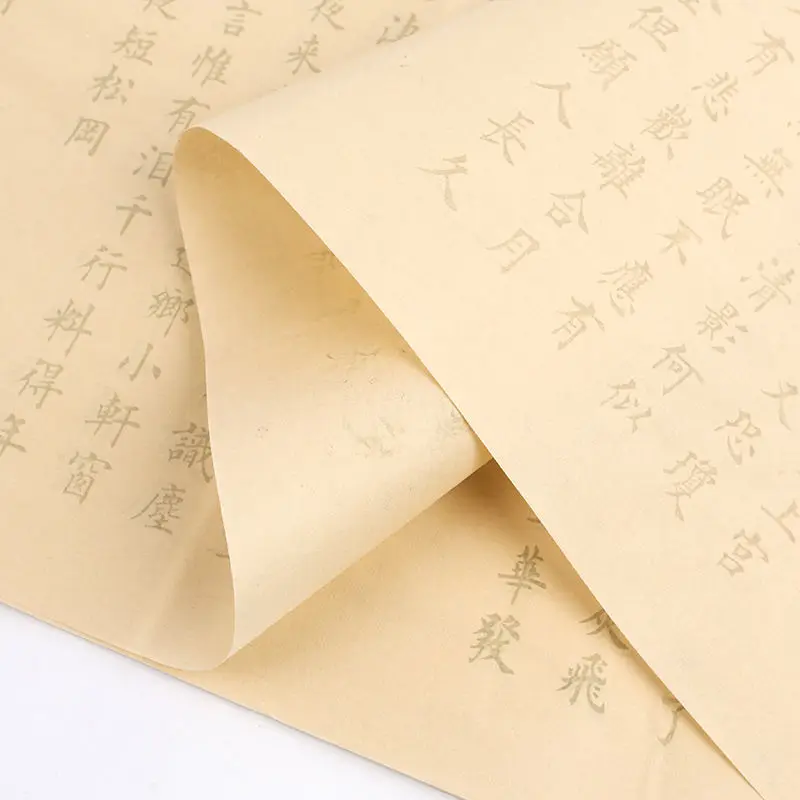 上宮
又恐瓊
清影何似
無眠不應有
有悲歡離合月
但願人長久
了
飛
華發
識塵
夜来
鄉小軒窗
言惟有泪千行料得年
短松岡